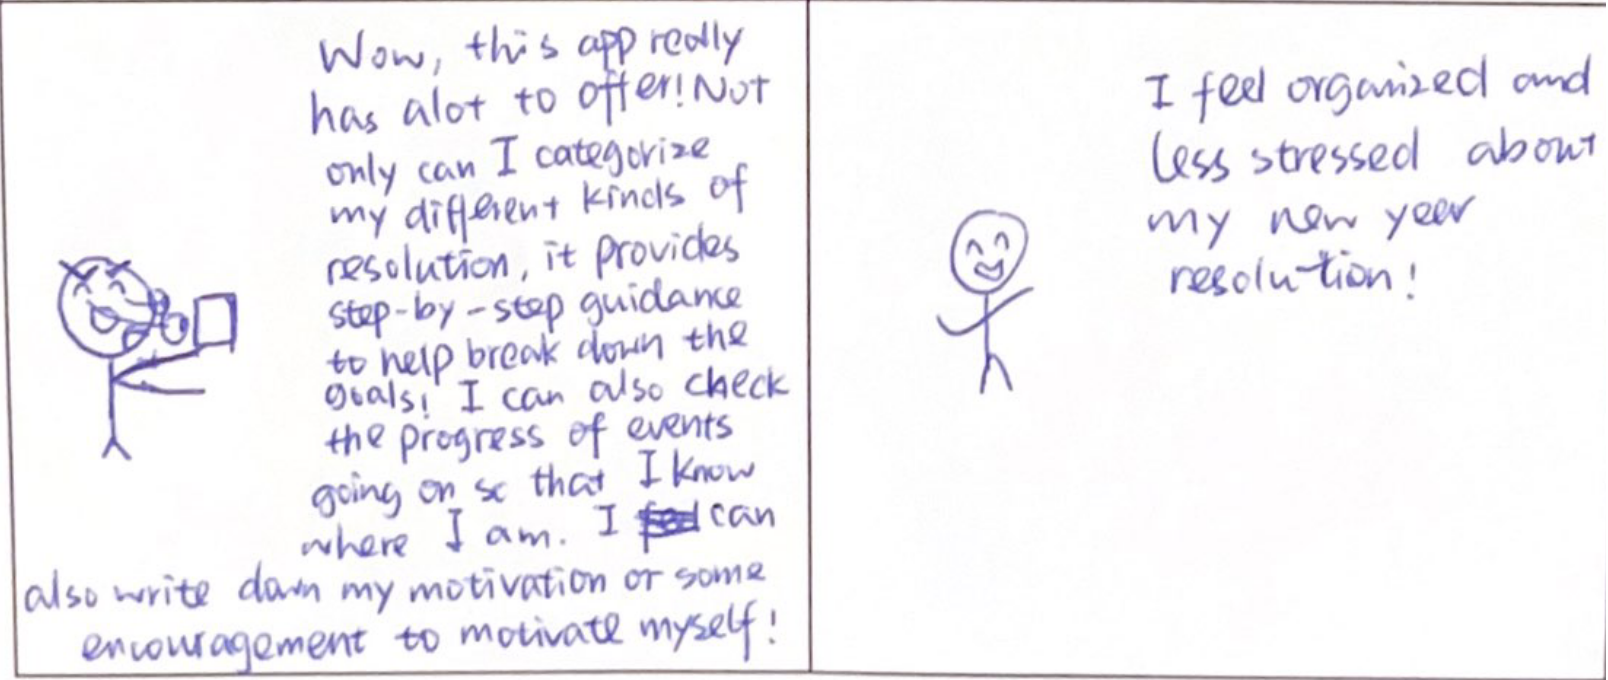 Wow, this app really
has alot to offer! Not
only can I categorize
my different kinds of
resolution, it provides
step-by-step guidance
to help break down the
goals! I can also check
the progress of events
going on so that I know
where I am. I can
also write down my motivation or some
encouragement to motivate myself!
I feel organized and
less stressed about
my new year
resolution!